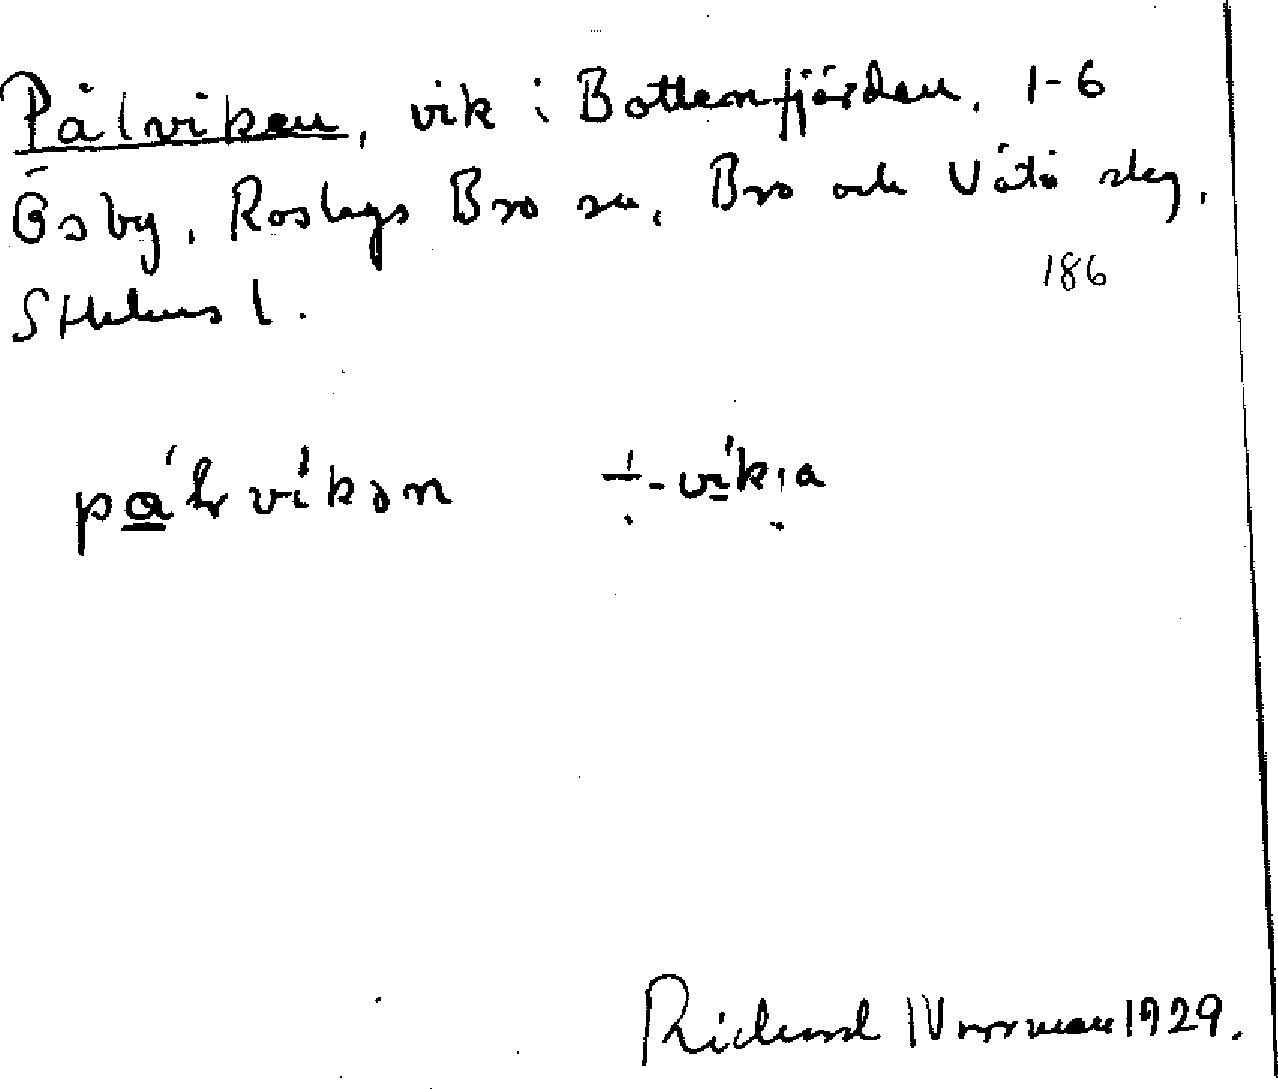 Pålviken, vik i Bottenfjärden, 1-6
Ösby, Roslags Bro sn, Bro och Vätö skg,
Sthlms l.
186
på´lvi´kən ⊥-vi´ka
Rickard Norrman 1929.